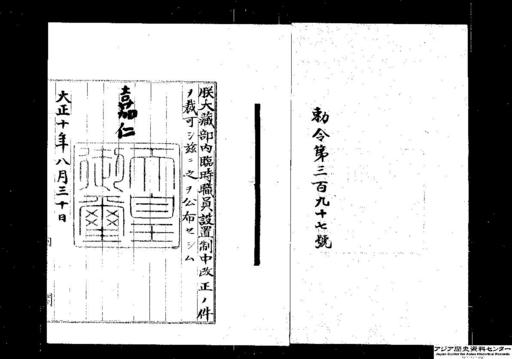 勅令第三百九十七號
朕大藏部内臨時職員設置制中改正ノ件
ヲ裁可シ茲ニ之ヲ公布セシム
嘉仁
天皇御璽
大正十年八月三十日
アジア歴史資料センター
Japan Center for Asian Historical Records